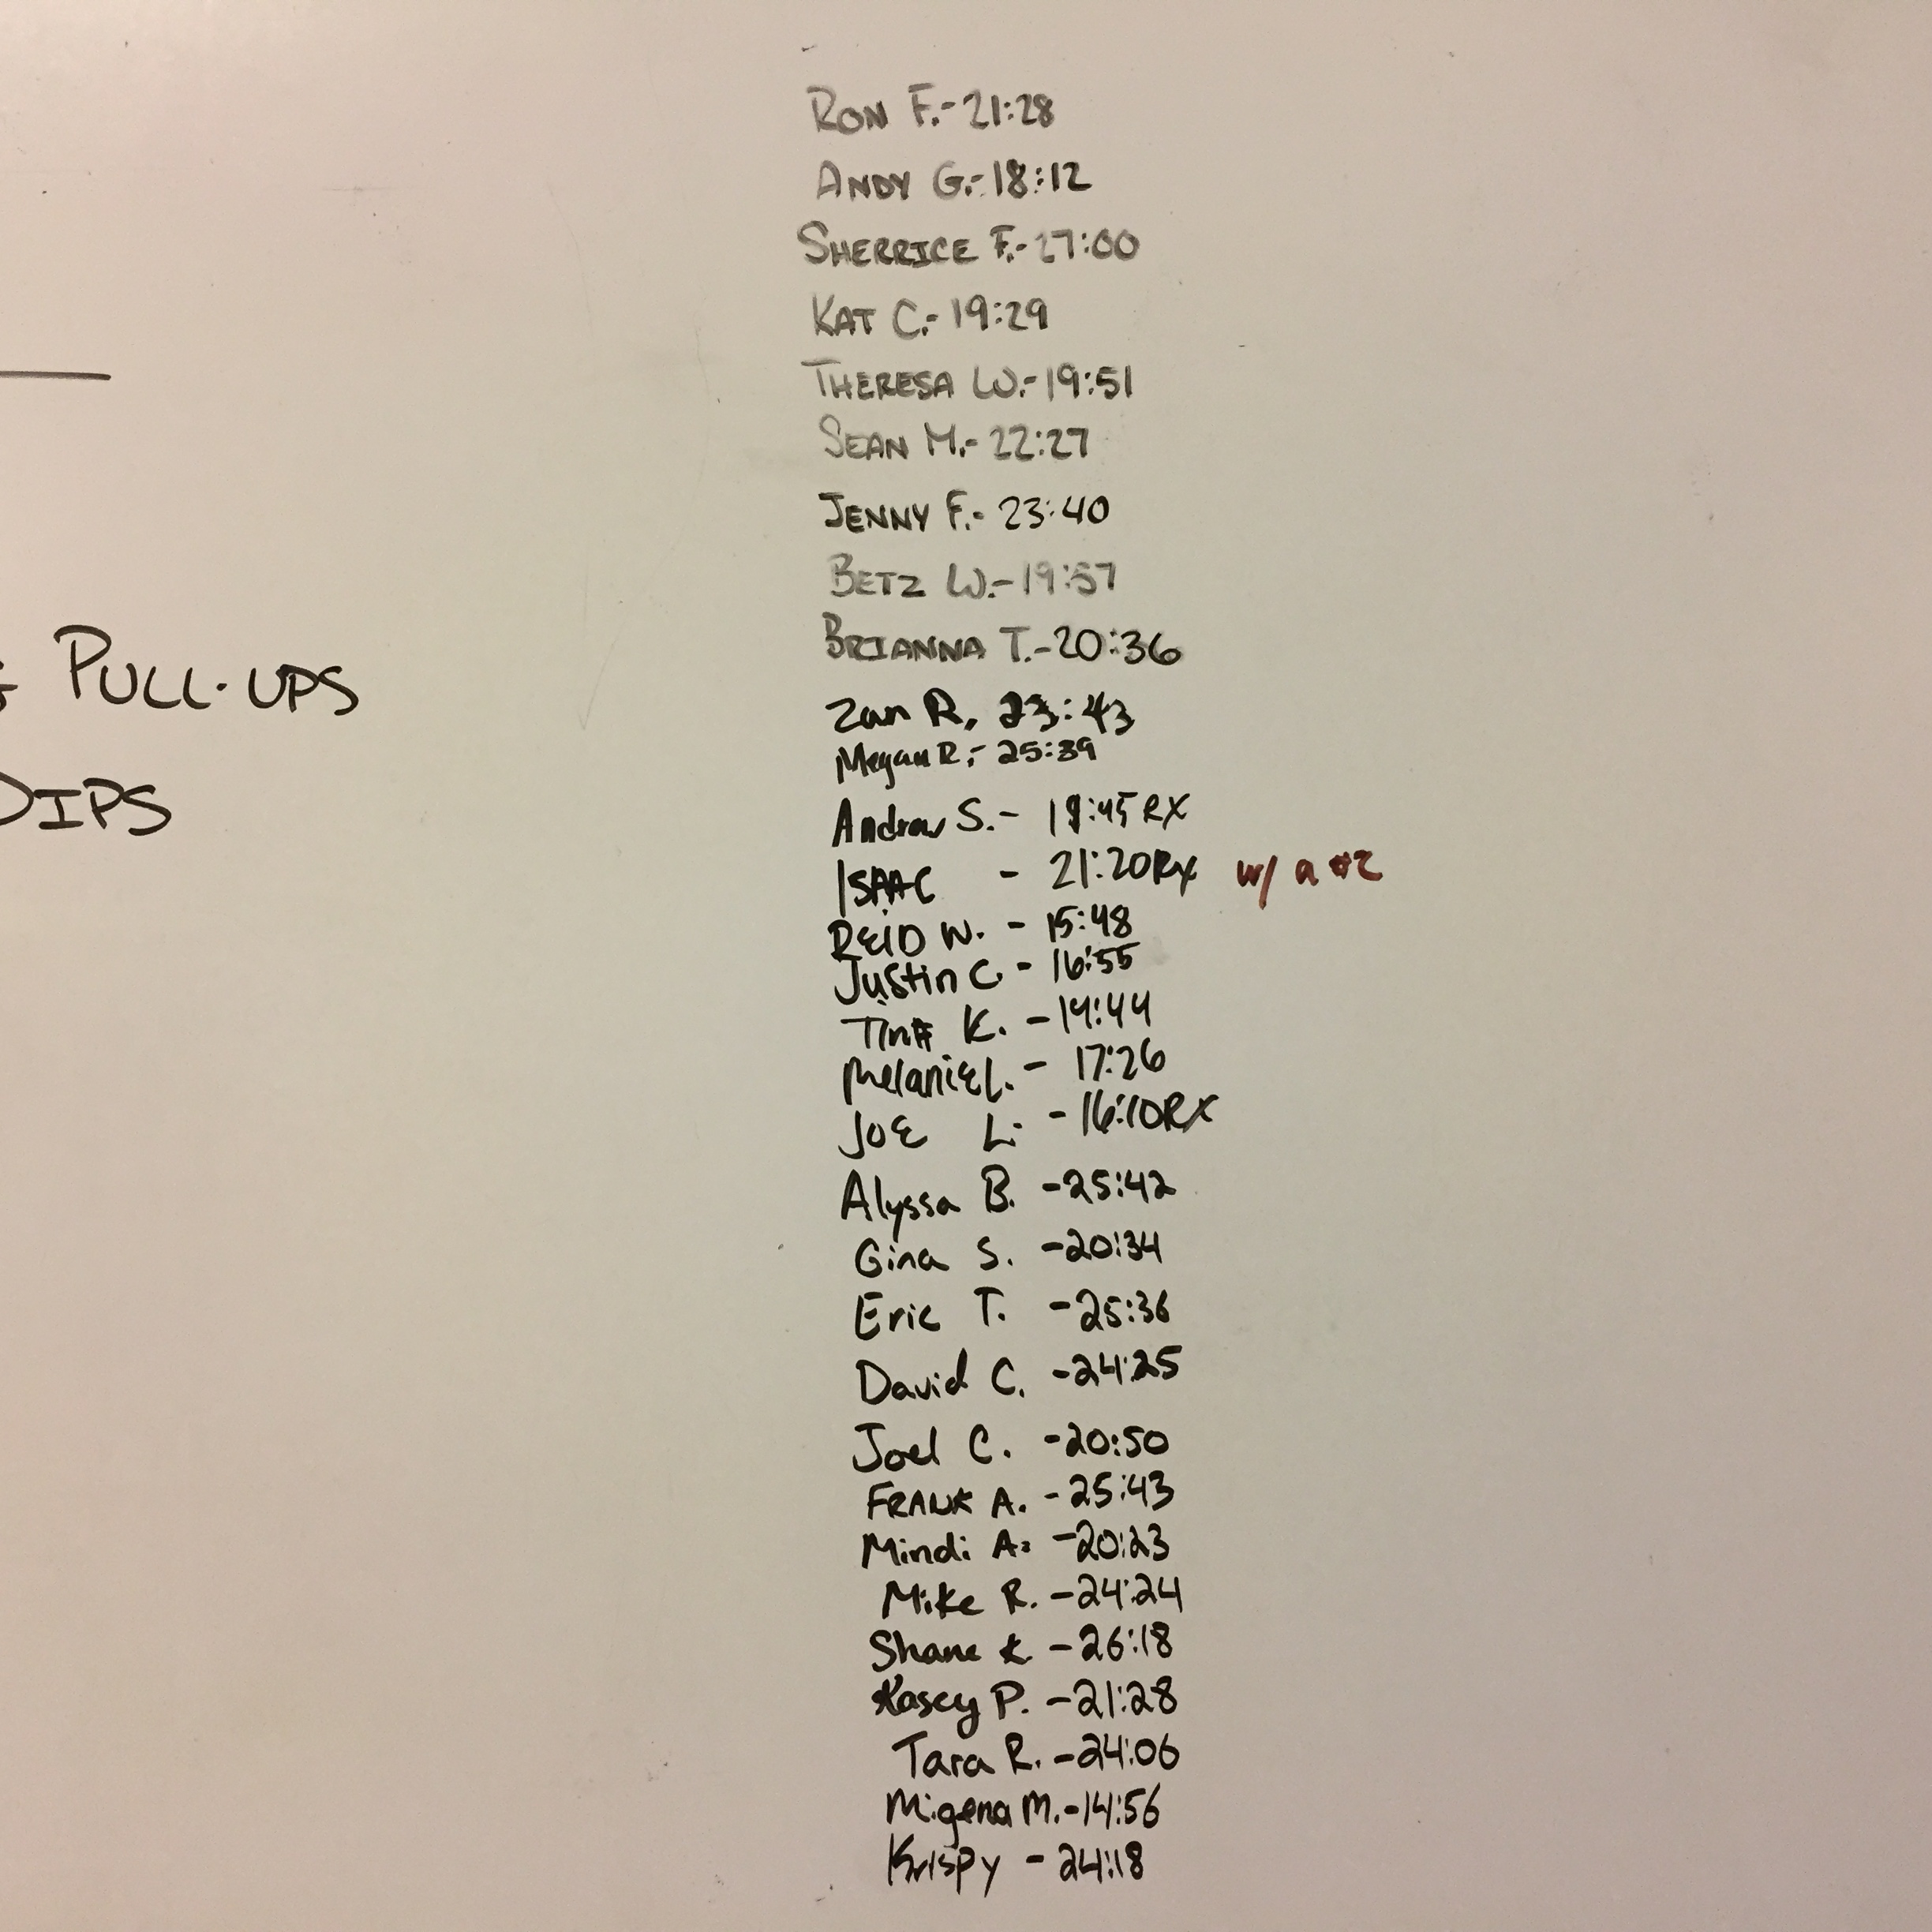 RON F.-21:28
ANDY G.-18:12
SHERRICE F.-27:00
KAT C.-19:29
THERESA W.-19:51
SEAN M.-22:27
JENNY F.-23:40
BETZ W.-19:57
BRIANNA T.-20:36
PULL-UPS
Zan R. 23:43
Megan R.- 25:39
DIPS
Andrew S.- 19:45 RX
ISAAC - 21:20 RX w/ a
REID W. - 15:48
Justin C. - 16:55
Tina K. - 19:44
Melanie L. - 17:26
JOE L. - 16:10 RX
Alyssa B. -25:42
Gina S. -20:34
Eric T. -25:36
David C. -24:25
Joel C. -20:50
FRANK A. -25:43
Mindi A. -20:23
Mike R. -24:24
Shane K. -26:18
Kasey P. -21:28
Tara R. -24:06
Migena M.-14:56
Krispy - 24:18